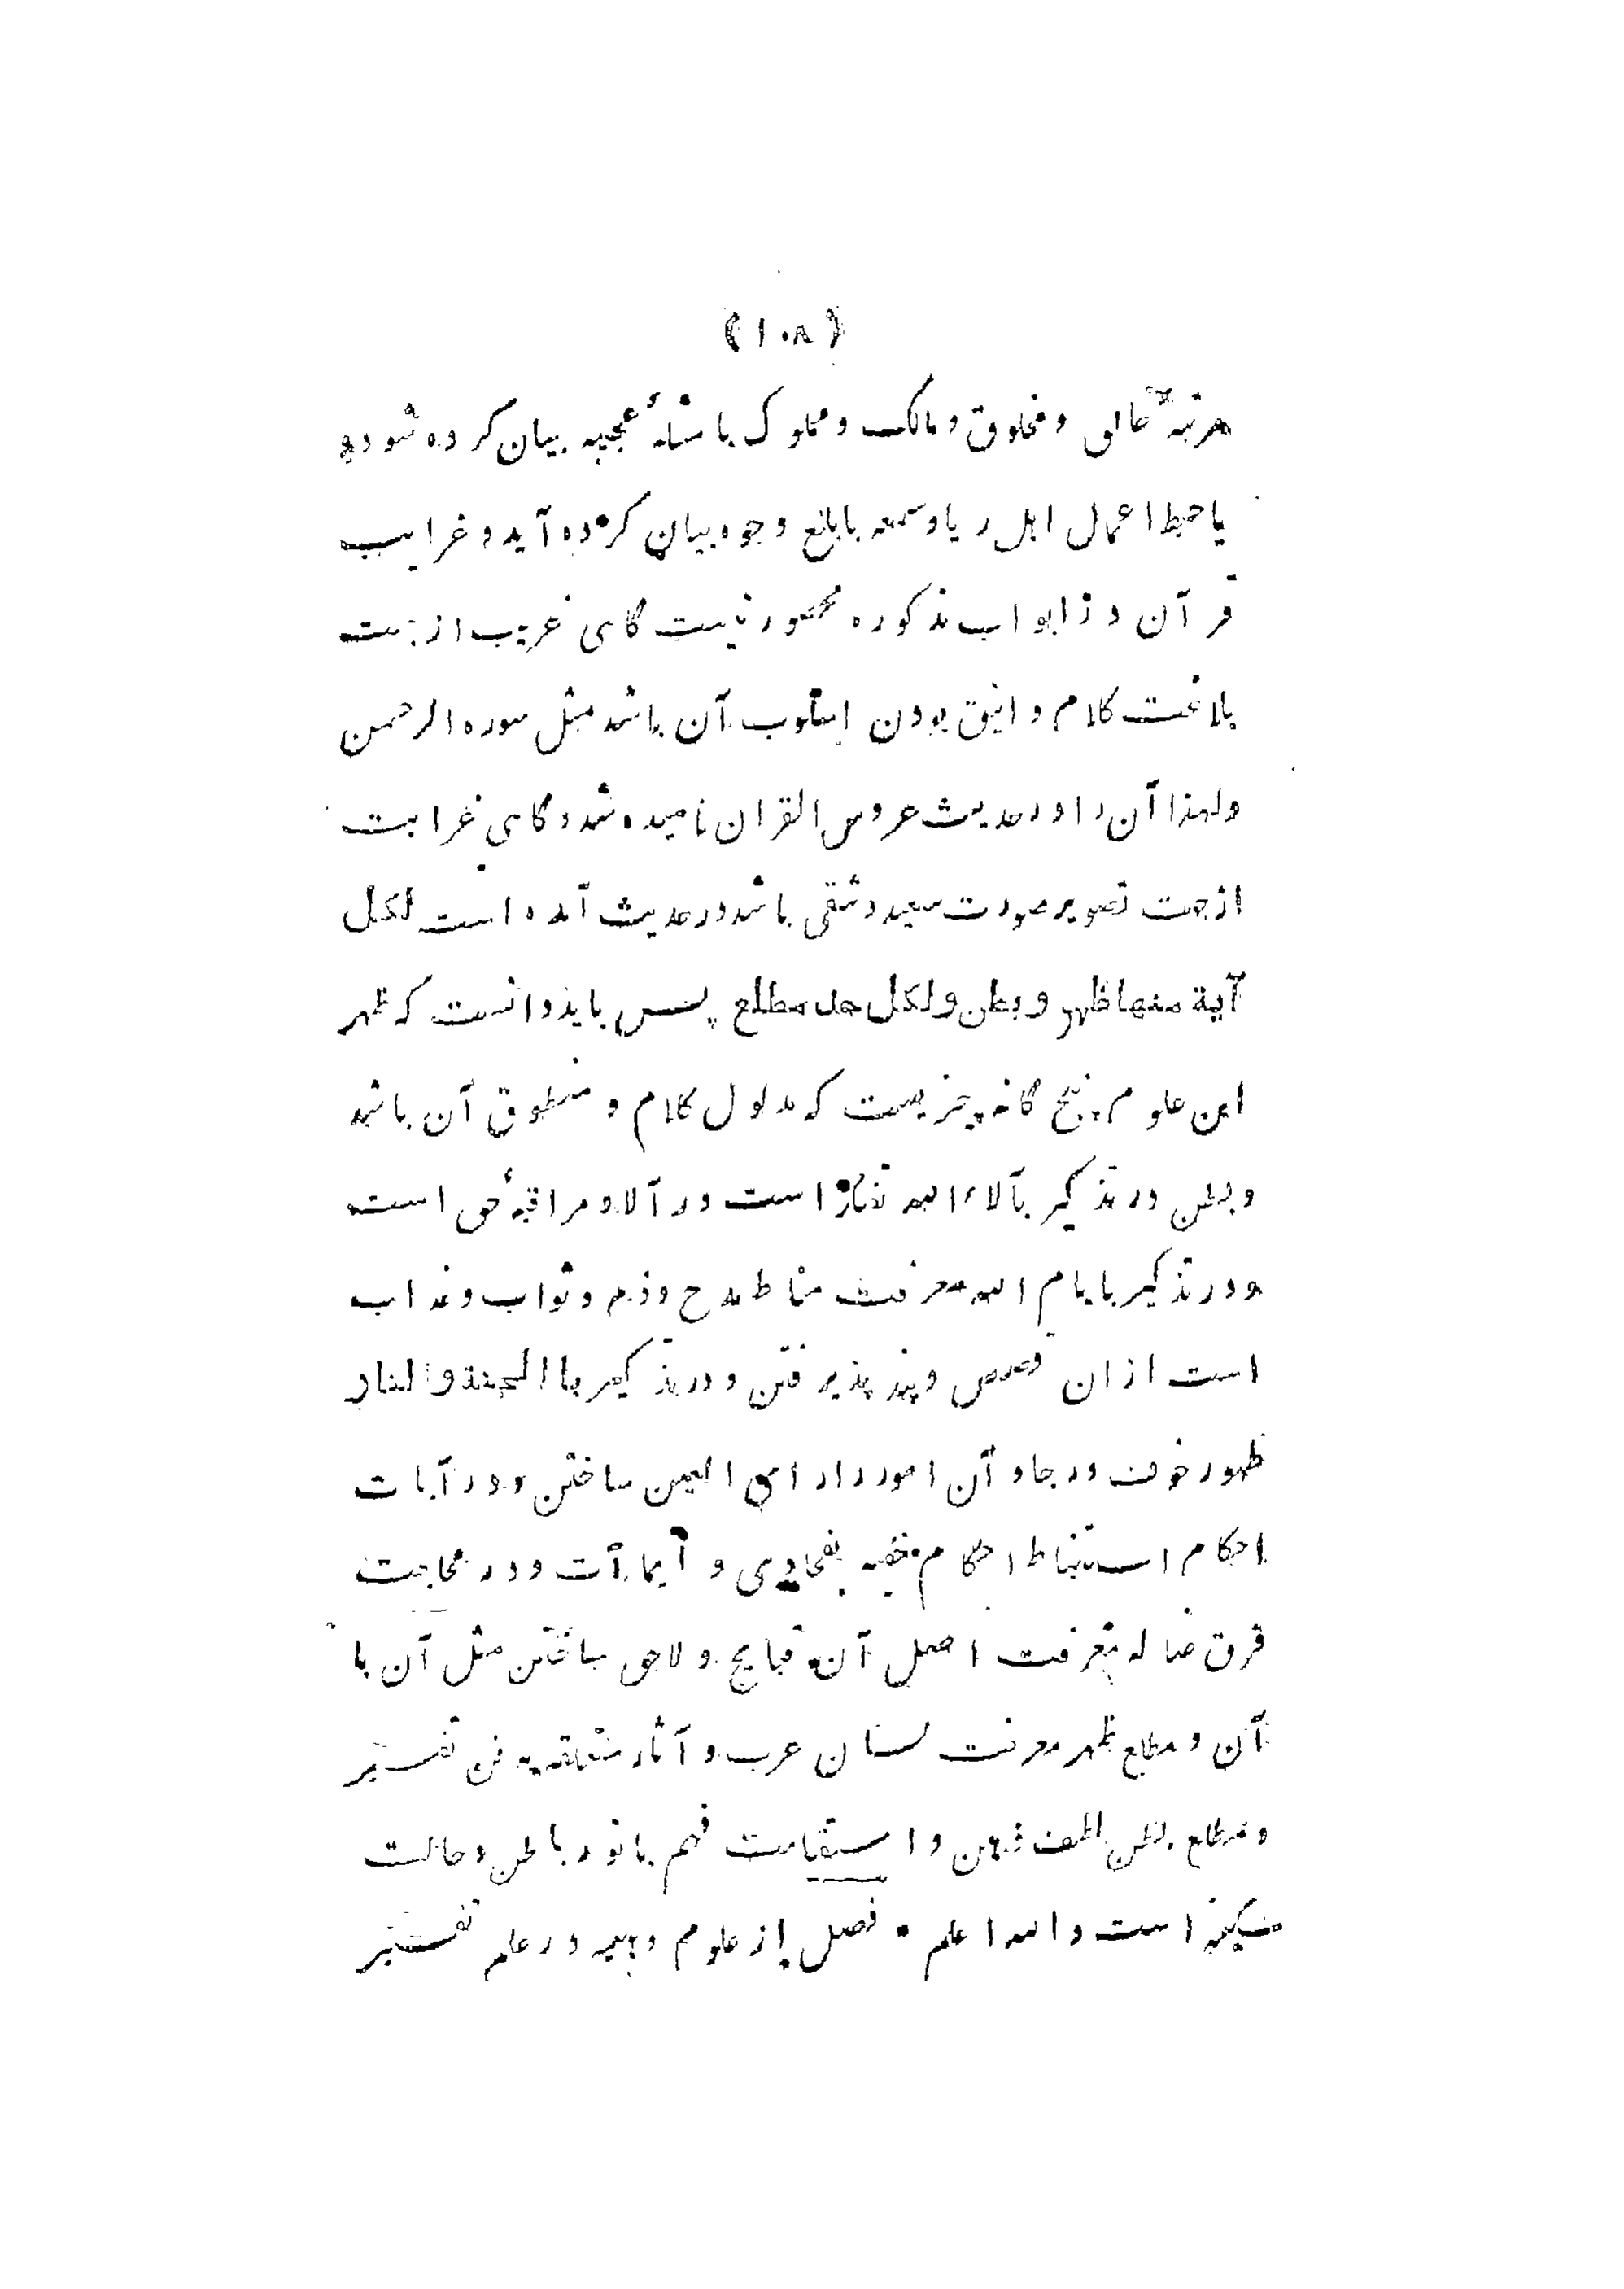 (۱۰۸)
مرتبهٔ خالق و مخلوق و مالک و مملوک با مثلهٔ عجیبه بیان کرده شود و
یا حبط اعمال اہل ریا و سمعه بابلغ وجوه بیان کرده آید و غرایب
قرآن در ابواب مذکوره محصور نیست گاہی غریب از جہت
بلاغت کلام و انیق بودن اسلوب آن باشد مثل سوره الرحمن
ولہذا آن را در حدیث عروس القران نامیده شد و گاہی غرابت
از جہت تصویر صورت سعید و شقی باشد در حدیث آمده است لکل
آیة منها ظهر و بطن ولکل حد مطلع پس باید دانست که ظہر
این علوم پنج گانه چیزیست که مدلول کلام و منطوق آن باشد
و بطن در تذکیر بآلاء الله تفکر است در آلاء و مراقبهٔ حق است
و در تذکیر بایام الله معرفت مناط مدح و ذم و ثواب و عذاب
است ازان قصص و پند پذیرفتن و در تذکیر با الجنة و النار
ظہور خوف و رجا و آن امور را رای العین ساختن و در آیات
احکام استنباط احکام خفیه بفحاوی و ایماآت و در محاجت
فرق ضاله معرفت اصل آن قبایح و لاحق ساختن مثل آن با
آن و مطلع ظہر معرفت لسان عرب و آثار متعلقه به فن تفسیر
و مطلع بطن لطف ذہن و استقامت فہم بانور باطن و حالت
سکینه است والله اعلم • فصل از علوم وہبیه در علم تفسیر